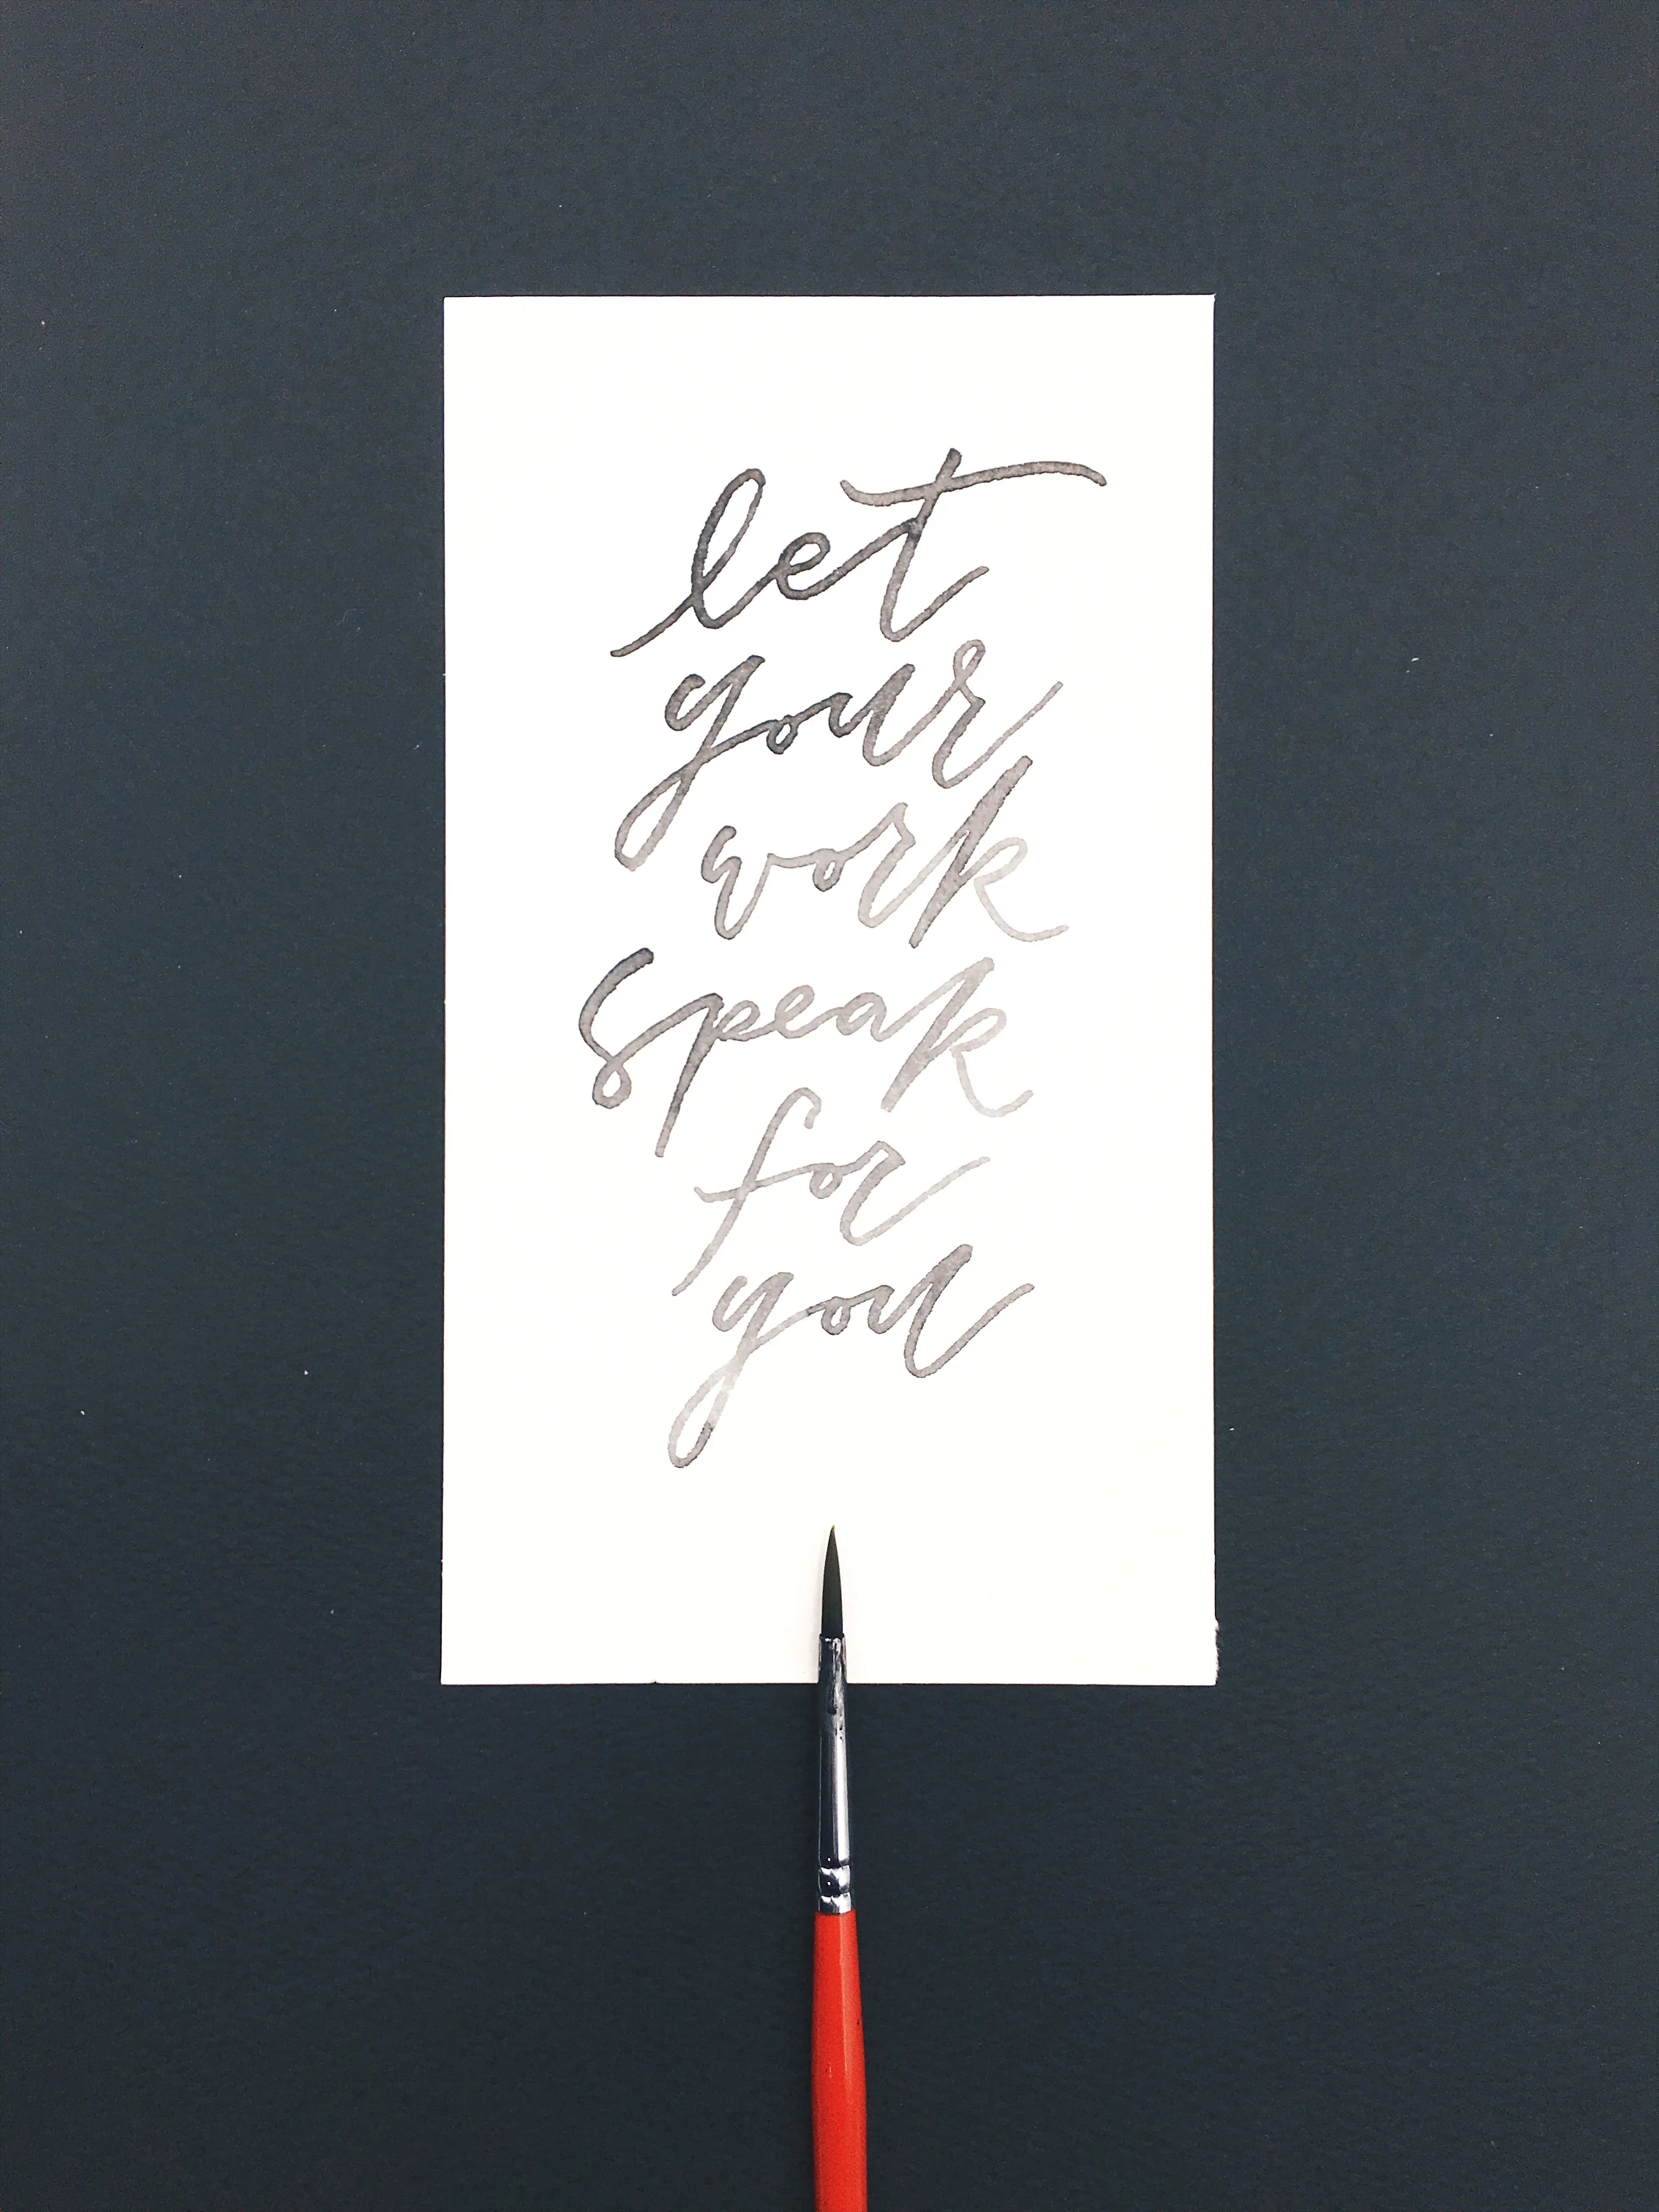 let
your
work
speak
for
you